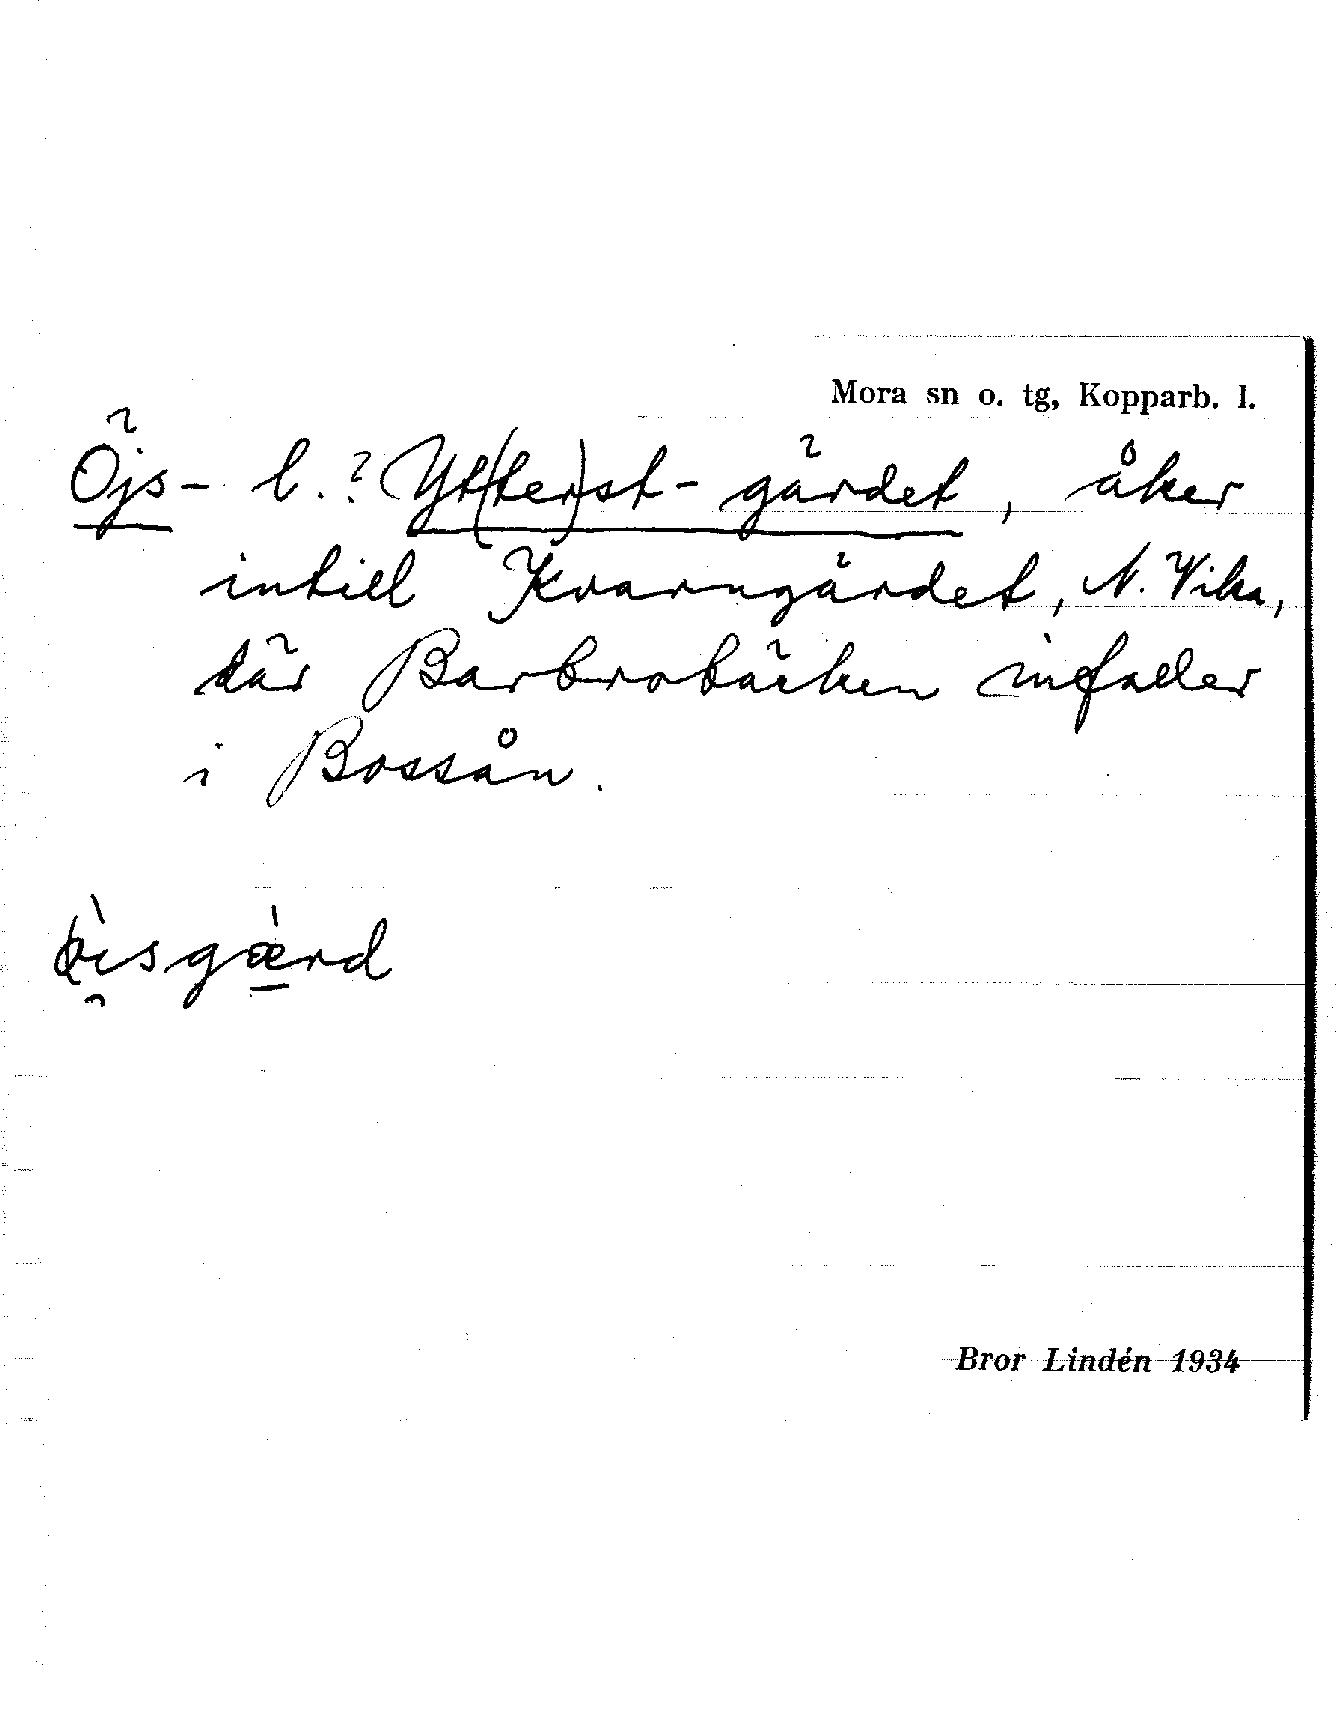 Mora sn o. tg, Kopparb. l.
Öjs- l.? Yt(ter)st-gärdet, åker
intill Kvarngärdet, N. Vika,
där Barbrobäcken infaller
i Bossån.
Bror Lindén 1934